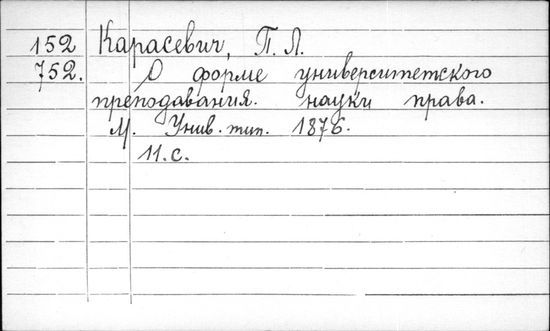 152 Карасевич, П. Л.
752. О форме университетского
преподавания. науки права.
М. Унив. тип. 1876.
11. с.